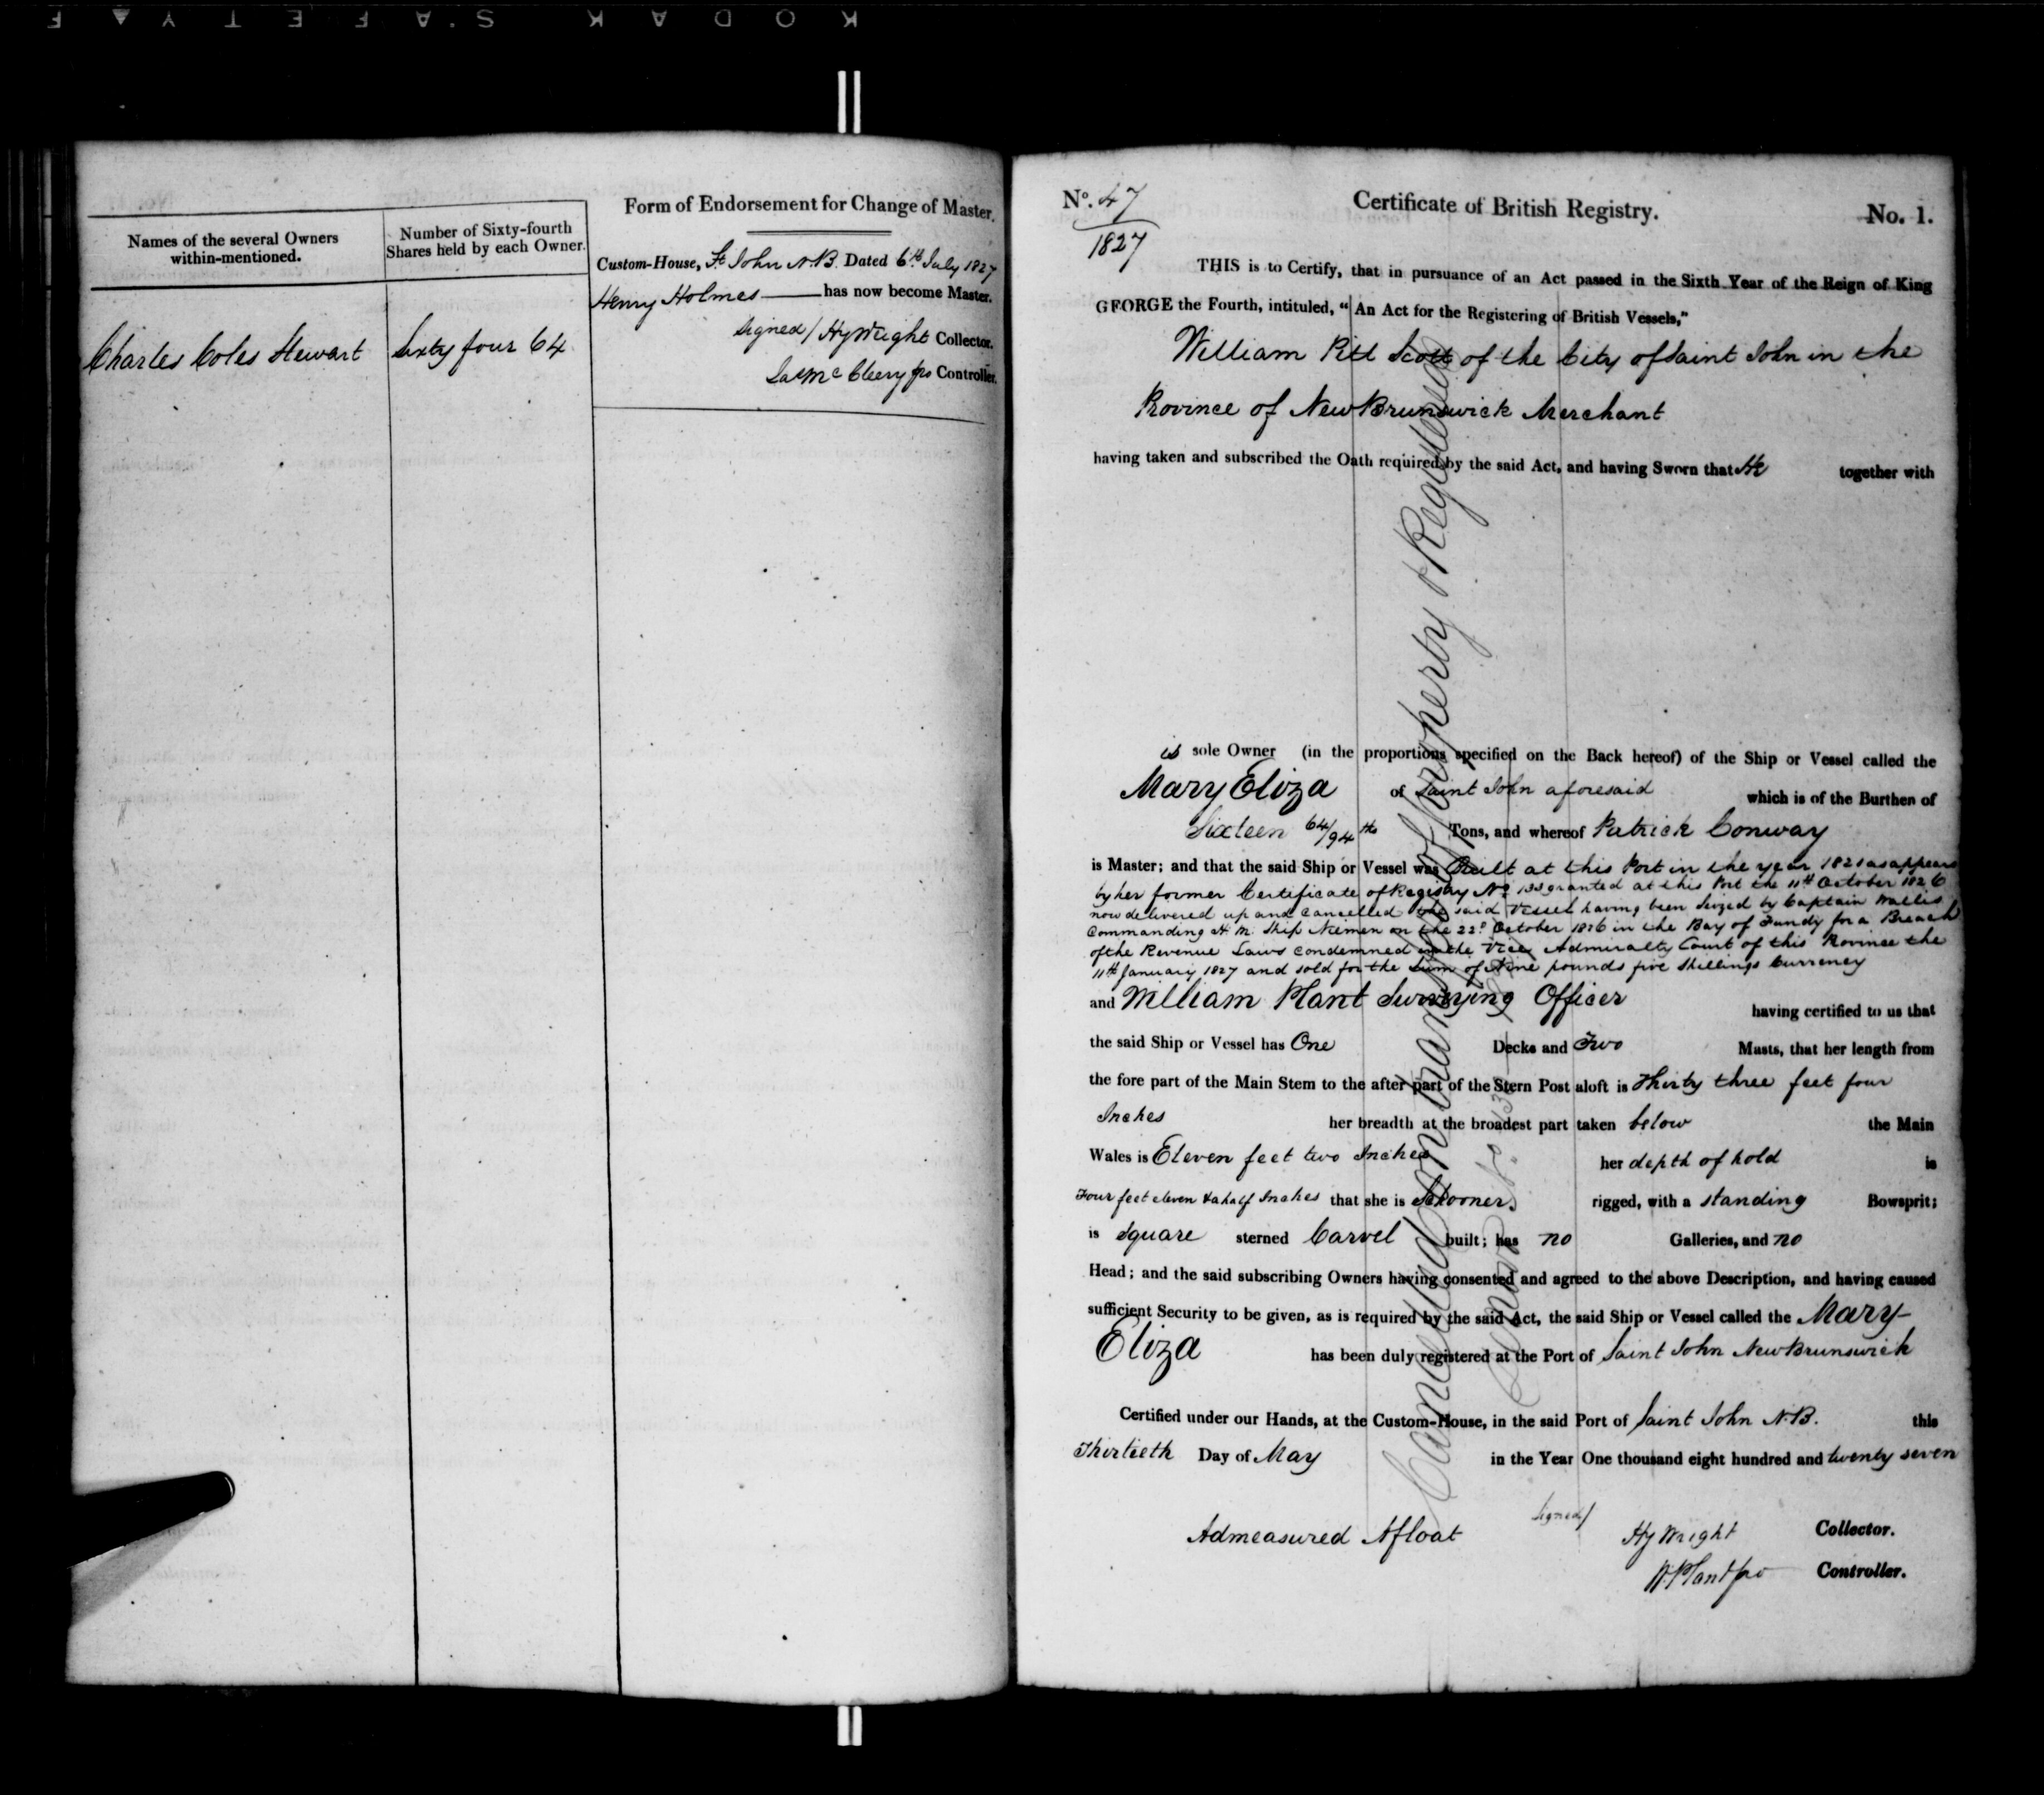 KODAK SAFETY F
Names of the several Owners within-mentioned.
Number of Sixty-fourth Shares held by each Owner.
Charles Coles Stewart
Sixty four 64
Form of Endorsement for Change of Master.
Custom-House, St John N.B. Dated 6th July 1827
Henry Holmes has now become Master.
Signed/ Hy Wright Collector.
Controller.
No. 47
1827
Certificate of British Registry.
No. 1.
THIS is to Certify, that in pursuance of an Act passed in the Sixth Year of the Reign of King
GEORGE the Fourth, intituled, "An Act for the Registering of British Vessels,"
William Pitt Scott of the City of Saint John in the
Province of New Brunswick Merchant
having taken and subscribed the Oath required by the said Act, and having Sworn that He together with
is sole Owner (in the proportions specified on the Back hereof) of the Ship or Vessel called the
Mary Eliza of Saint John aforesaid which is of the Burthen of
Sixteen 64/94ths Tons, and whereof Patrick Conway
is Master; and that the said Ship or Vessel was Built at this Port in the year 1821 as appears
by her former Certificate of Registry No 133 granted at this Port the 11th October 1826
now delivered up and cancelled the said Vessel having been Seized by Captain Wallis
Commanding H.M. Ship Niemen on the 22d October 1826 in the Bay of Fundy for a Breach
of the Revenue Laws condemned in the Vice Admiralty Court of this Province the
11th January 1827 and sold for the Sum of Nine pounds five Shillings Currency
and William Plant Surveying Officer having certified to us that
the said Ship or Vessel has One Decks and Two Masts, that her length from
the fore part of the Main Stem to the after part of the Stern Post aloft is Thirty three feet four
Inches her breadth at the broadest part taken below the Main
Wales is Eleven feet two Inches her depth of hold is
Four feet eleven & a half Inches that she is Schooner rigged, with a standing Bowsprit;
is Square sterned Carvel built; has no Galleries, and no
Head; and the said subscribing Owners having consented and agreed to the above Description, and having caused
sufficient Security to be given, as is required by the said Act, the said Ship or Vessel called the Mary
Eliza has been duly registered at the Port of Saint John New Brunswick
Certified under our Hands, at the Custom-House, in the said Port of Saint John N.B. this
Thirtieth Day of May in the Year One thousand eight hundred and twenty seven
Admeasured Afloat
Signed/ Hy Wright Collector.
W Plant pro Controller.
Cancelled on transfer of property & Registered